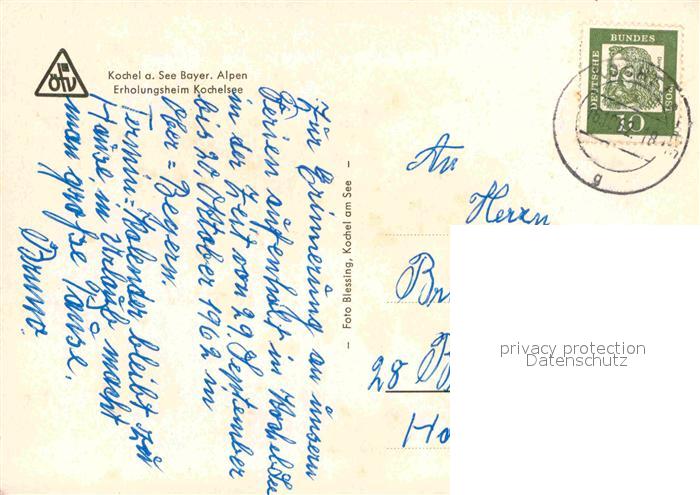 ÖTV
Kochel a. See Bayer. Alpen
Erholungsheim Kochelsee
Zur Erinnerung an unsern
Ferienaufenhalt in Kochelsee
in der Zeit von 29. September
bis 20. Oktober 1962 in
Ober=Beyern.
Termin=Kalender bleibt zu
Hause, in Urlaub macht
man große Pause.
Bruno.
– Foto Blessing, Kochel am See –
DEUTSCHE
BUNDES
POST
10
18
g
An
Herrn
Br
28 B
Ho
privacy protection
Datenschutz